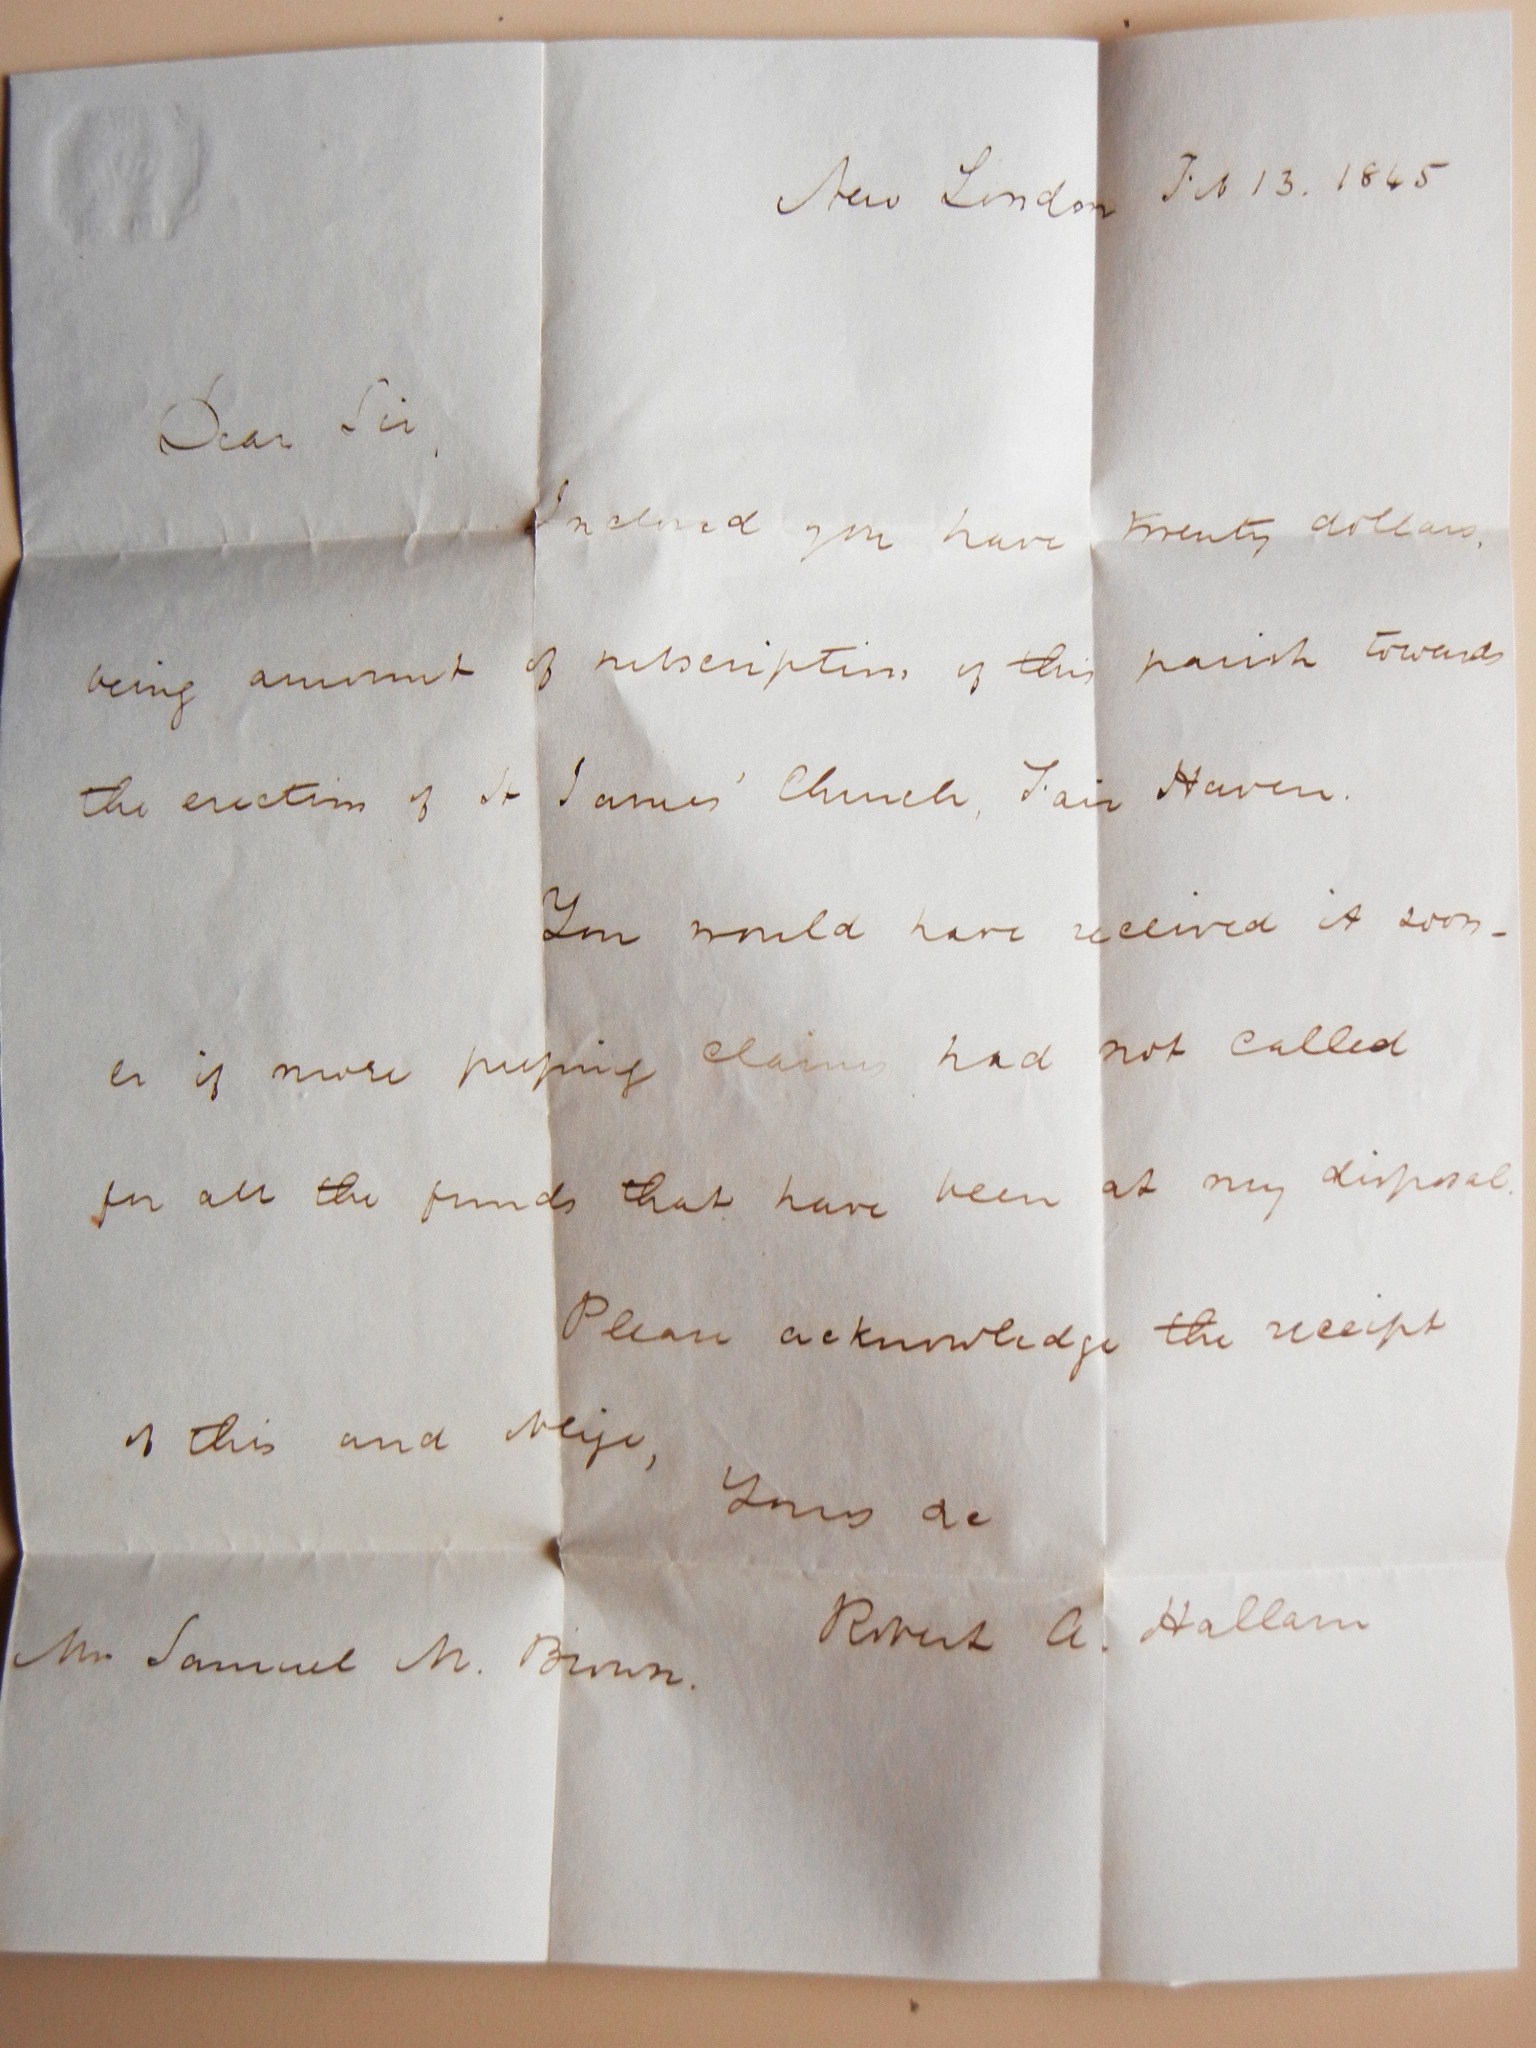 New London Feb 13. 1845
Dear Sir,
Inclosed you have twenty dollars,
being amount of subscription of this parish towards
the erection of St James' Church, Fair Haven.
You would have received it soon-
er if more pressing claims had not called
for all the funds that have been at my disposal.
Please acknowledge the receipt
of this and oblige,
Yours &c
Robert A. Hallam
Mr Samuel M. Brown.